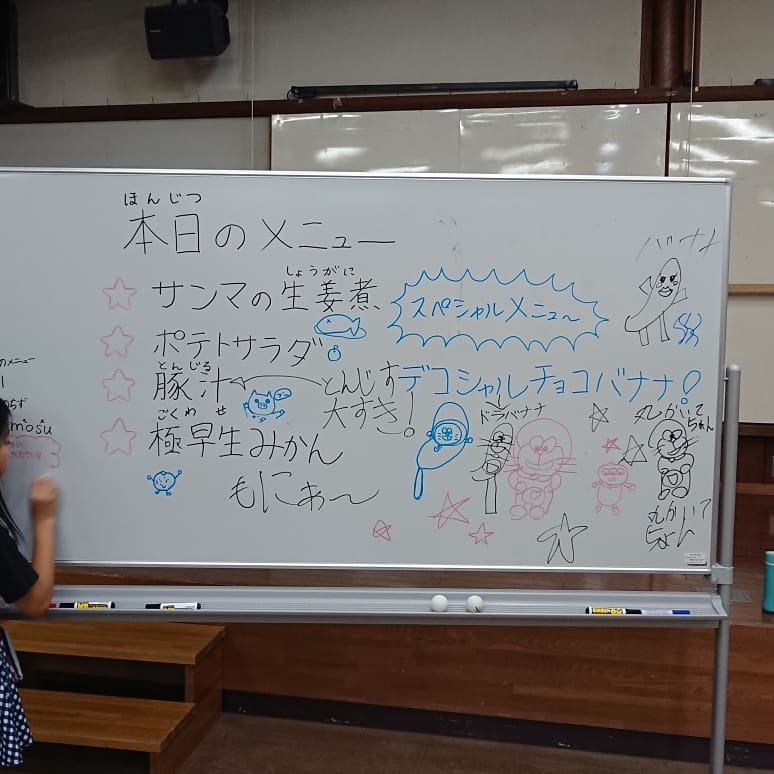 ほんじつ
本日のメニュー
しょうがに
サンマの生姜煮
スペシャルメニュー
バナナ
ポテトサラダ
とんじる
豚汁
とんじす
大すき!
デコシャルチョコバナナ!
ドラバナナ
ごくわせ
極早生みかん
もにぁ〜
丸かいて
ちょん
丸かいて
ちょん
のメニュー
mosu